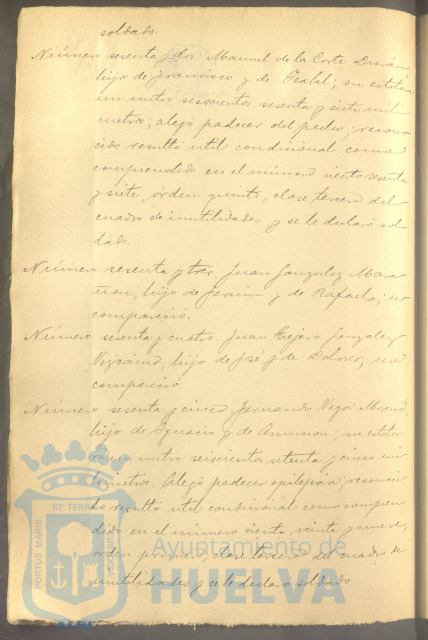 soldado.
Número sesenta y dos. Manuel de la Corte Durán
hijo de Francisco y de Isabel; su estatura
un metro seiscientos sesenta y siete milí
metros; alegó padecer del pecho; recono
cido resultó util condicional como
comprendido en el número ciento sesenta
y siete, órden quinto, clase tercera del
cuadro de inutilidades y se le declaró sol
dado.
Número sesenta y tres. Juan Gonzalez Mara
ñon, hijo de y de Rafaela; no
compareció.
Número sesenta y cuatro. Juan Tejero Gonzalez
Vizcaino, hijo de José y de Dolores, no
compareció.
Número sesenta y cinco Fernando Vega Moreno,
hijo de Ignacio y de Asuncion; su estatu
ra un metro seiscientos setenta y cinco mi
límetros. Alegó padecer epilepsia; reconoci
do resultó util condicional como compren
dido en el número ciento veinte y nueve,
órden primero, clase tercera del cuadro de
inutilidades y se le declaró soldado.
PORTUS MARIS ET TERRAE
Ayuntamiento de
HUELVA